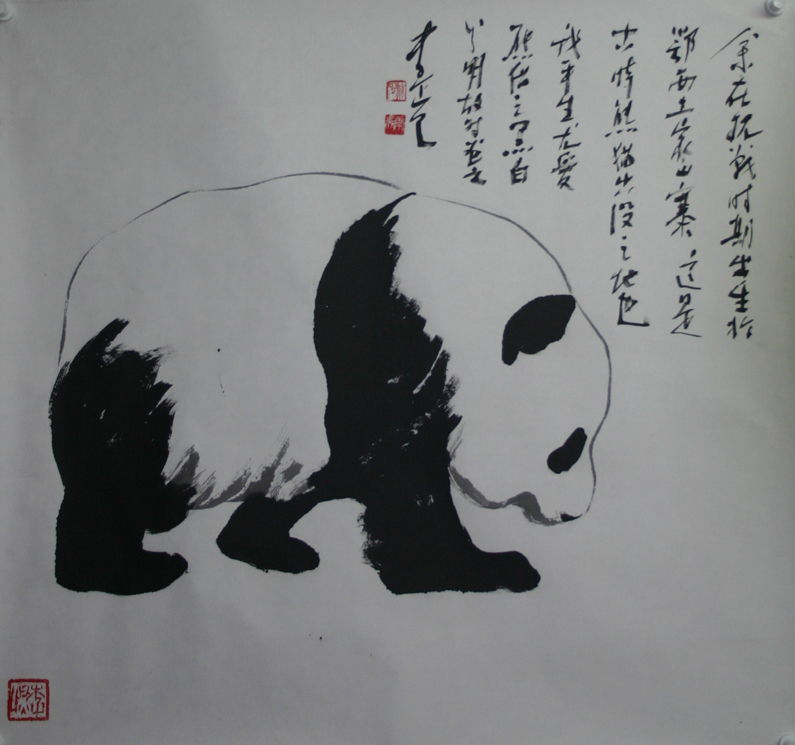 余在抗战时期出生於
鄂西土家山寨这是
古时熊猫出没之地也
我平生尤爱
熊猫之黑白
分明故时画之